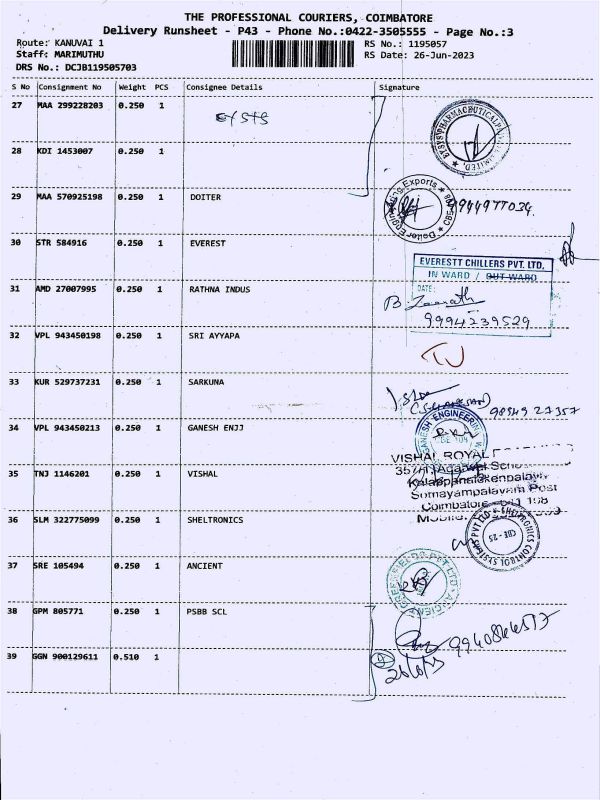 THE PROFESSIONAL COURIERS, COIMBATORE
Delivery Runsheet - P43 - Phone No.:0422-3505555 - Page No.:3
Route: KANUVAI 1
RS No.: 1195057
Staff: MARIMUTHU
RS Date: 26-Jun-2023
DRS No.: DCJB119505703
S No Consignment No Weight PCS Consignee Details Signature
27 MAA 299228203 0.250 1
28 KDI 1453007 0.250 1
29 MAA 570925198 0.250 1 DOITER
30 STR 584916 0.250 1 EVEREST
EVERESTT CHILLERS PVT. LTD.
IN WARD / OUT WARD
DATE:
31 AMD 27007995 0.250 1 RATHNA INDUS
9994239529
32 VPL 943450198 0.250 1 SRI AYYAPA
33 KUR 529737231 0.250 1 SARKUNA
98949 27357
34 VPL 943450213 0.250 1 GANESH ENJJ
GANESH ENGINEERING
VISHAL ROYAL
35 TNJ 1146201 0.250 1 VISHAL
Somayampalavam Post
Coimbatore
36 SLM 322775099 0.250 1 SHELTRONICS
CBE - 25
37 SRE 105494 0.250 1 ANCIENT
38 GPM 805771 0.250 1 PSBB SCL
39 GGN 900129611 0.510 1